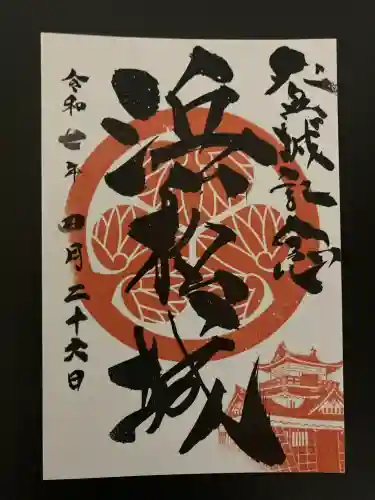 登城記念
浜松城
令和七年四月二十六日